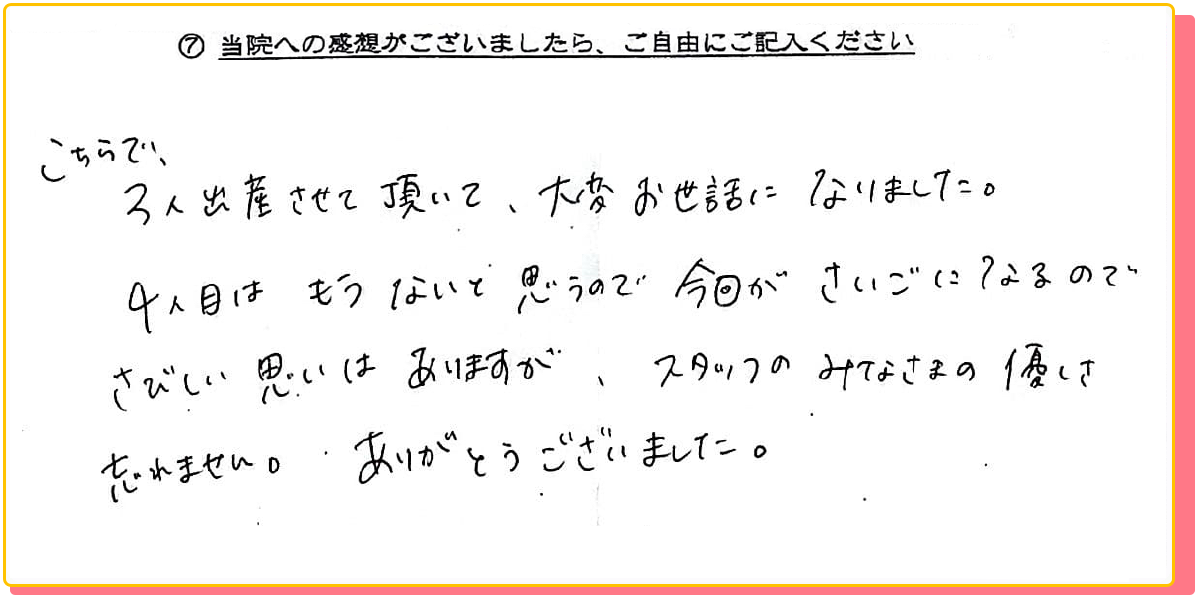 ⑦ 当院への感想がございましたら、ご自由にご記入ください
こちらで、
3人出産させて頂いて、大変お世話になりました。
4人目は もうないと思うので今回が さいごになるので
さびしい思いは ありますが、スタッフの みなさまの優しさ
忘れません。ありがとうございました。